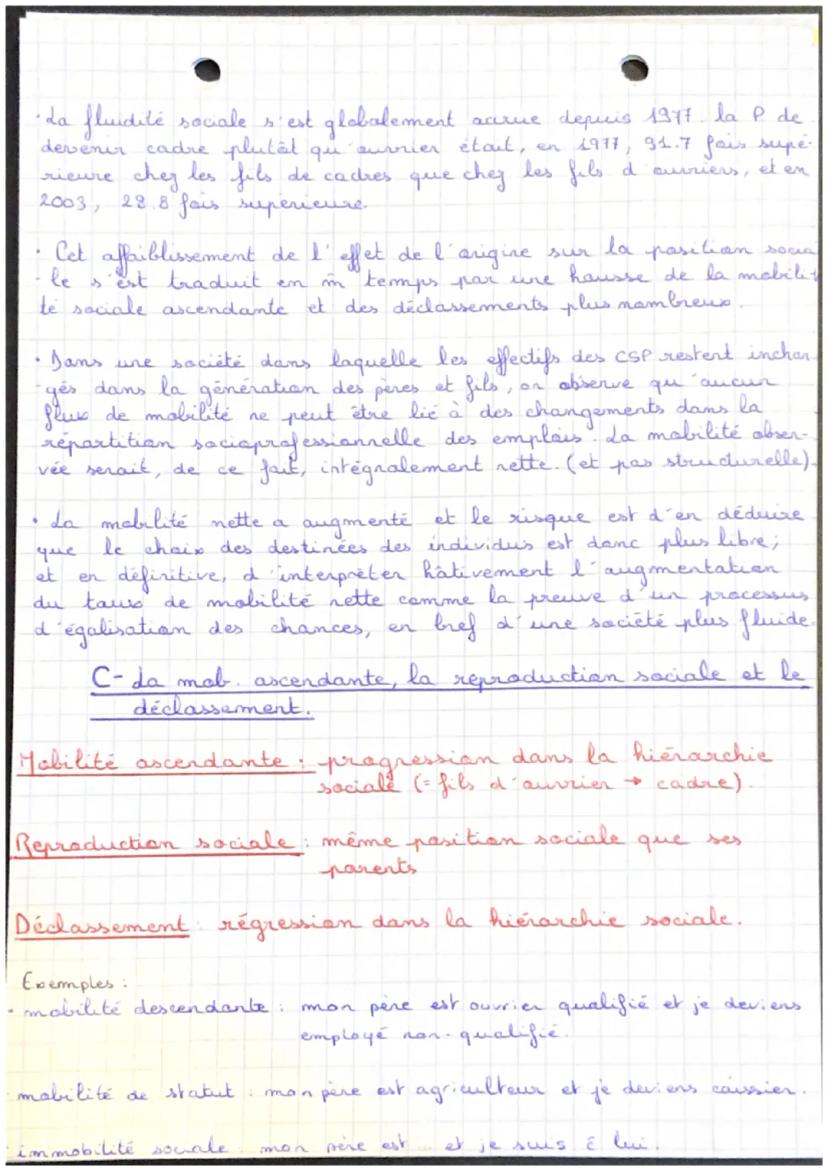 • La fluidité sociale s'est globalement accrue depuis 1977. la P de
devenir cadre plutôt qu'ouvrier était, en 1977, 91.7 fois supé-
rieure chez les fils de cadres que chez les fils d'ouvriers, et en
2003, 28.8 fois supérieure.
• Cet affaiblissement de l'effet de l'origine sur la position socia
-le s'est traduit en m̂ temps par une hausse de la mobili-
té sociale ascendante et des déclassements plus nombreux.
• Dans une société dans laquelle les effectifs des CSP restent inchan-
-gés dans la génération des pères et fils, on observe qu'aucun
flux de mobilité ne peut être lié à des changements dans la
répartition socioprofessionnelle des emplois. La mobilité obser-
vée serait, de ce fait, intégralement nette. (et pas structurelle).
• La mobilité nette a augmenté et le risque est d'en déduire
que le choix des destinées des individus est donc plus libre;
et en définitive, d'interpréter hâtivement l'augmentation
du taux de mobilité nette comme la preuve d'un processus
d'égalisation des chances, en bref d'une société plus fluide.
C- La mob. ascendante, la reproduction sociale et le
déclassement.
Mobilité ascendante : progression dans la hiérarchie
sociale (= fils d'ouvrier → cadre).
Reproduction sociale : même position sociale que ses
parents
Déclassement : régression dans la hiérarchie sociale.
Exemples :
- mobilité descendante : mon père est ouvrier qualifié et je deviens
employé non-qualifié.
mobilité de statut : mon père est agriculteur et je deviens caissier.
immobilité sociale mon père est ... et je suis c̄ lui.